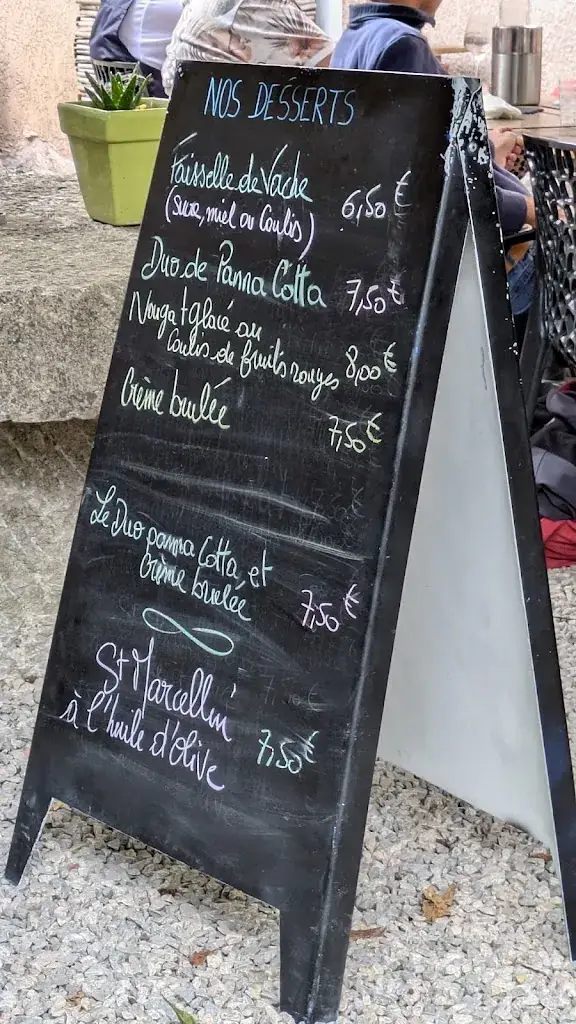 NOS DESSERTS
Faisselle de Vache
(Sucre, miel ou Coulis) 6,50 €
Duo de Panna Cotta 7,50 €
Nougat glacé au
Coulis de fruits rouges 8,00 €
Crème brulée 7,50 €
Le Duo panna Cotta et
Crème brulée 7,50 €
St Marcellin
à l'huile d'olive 7,50 €